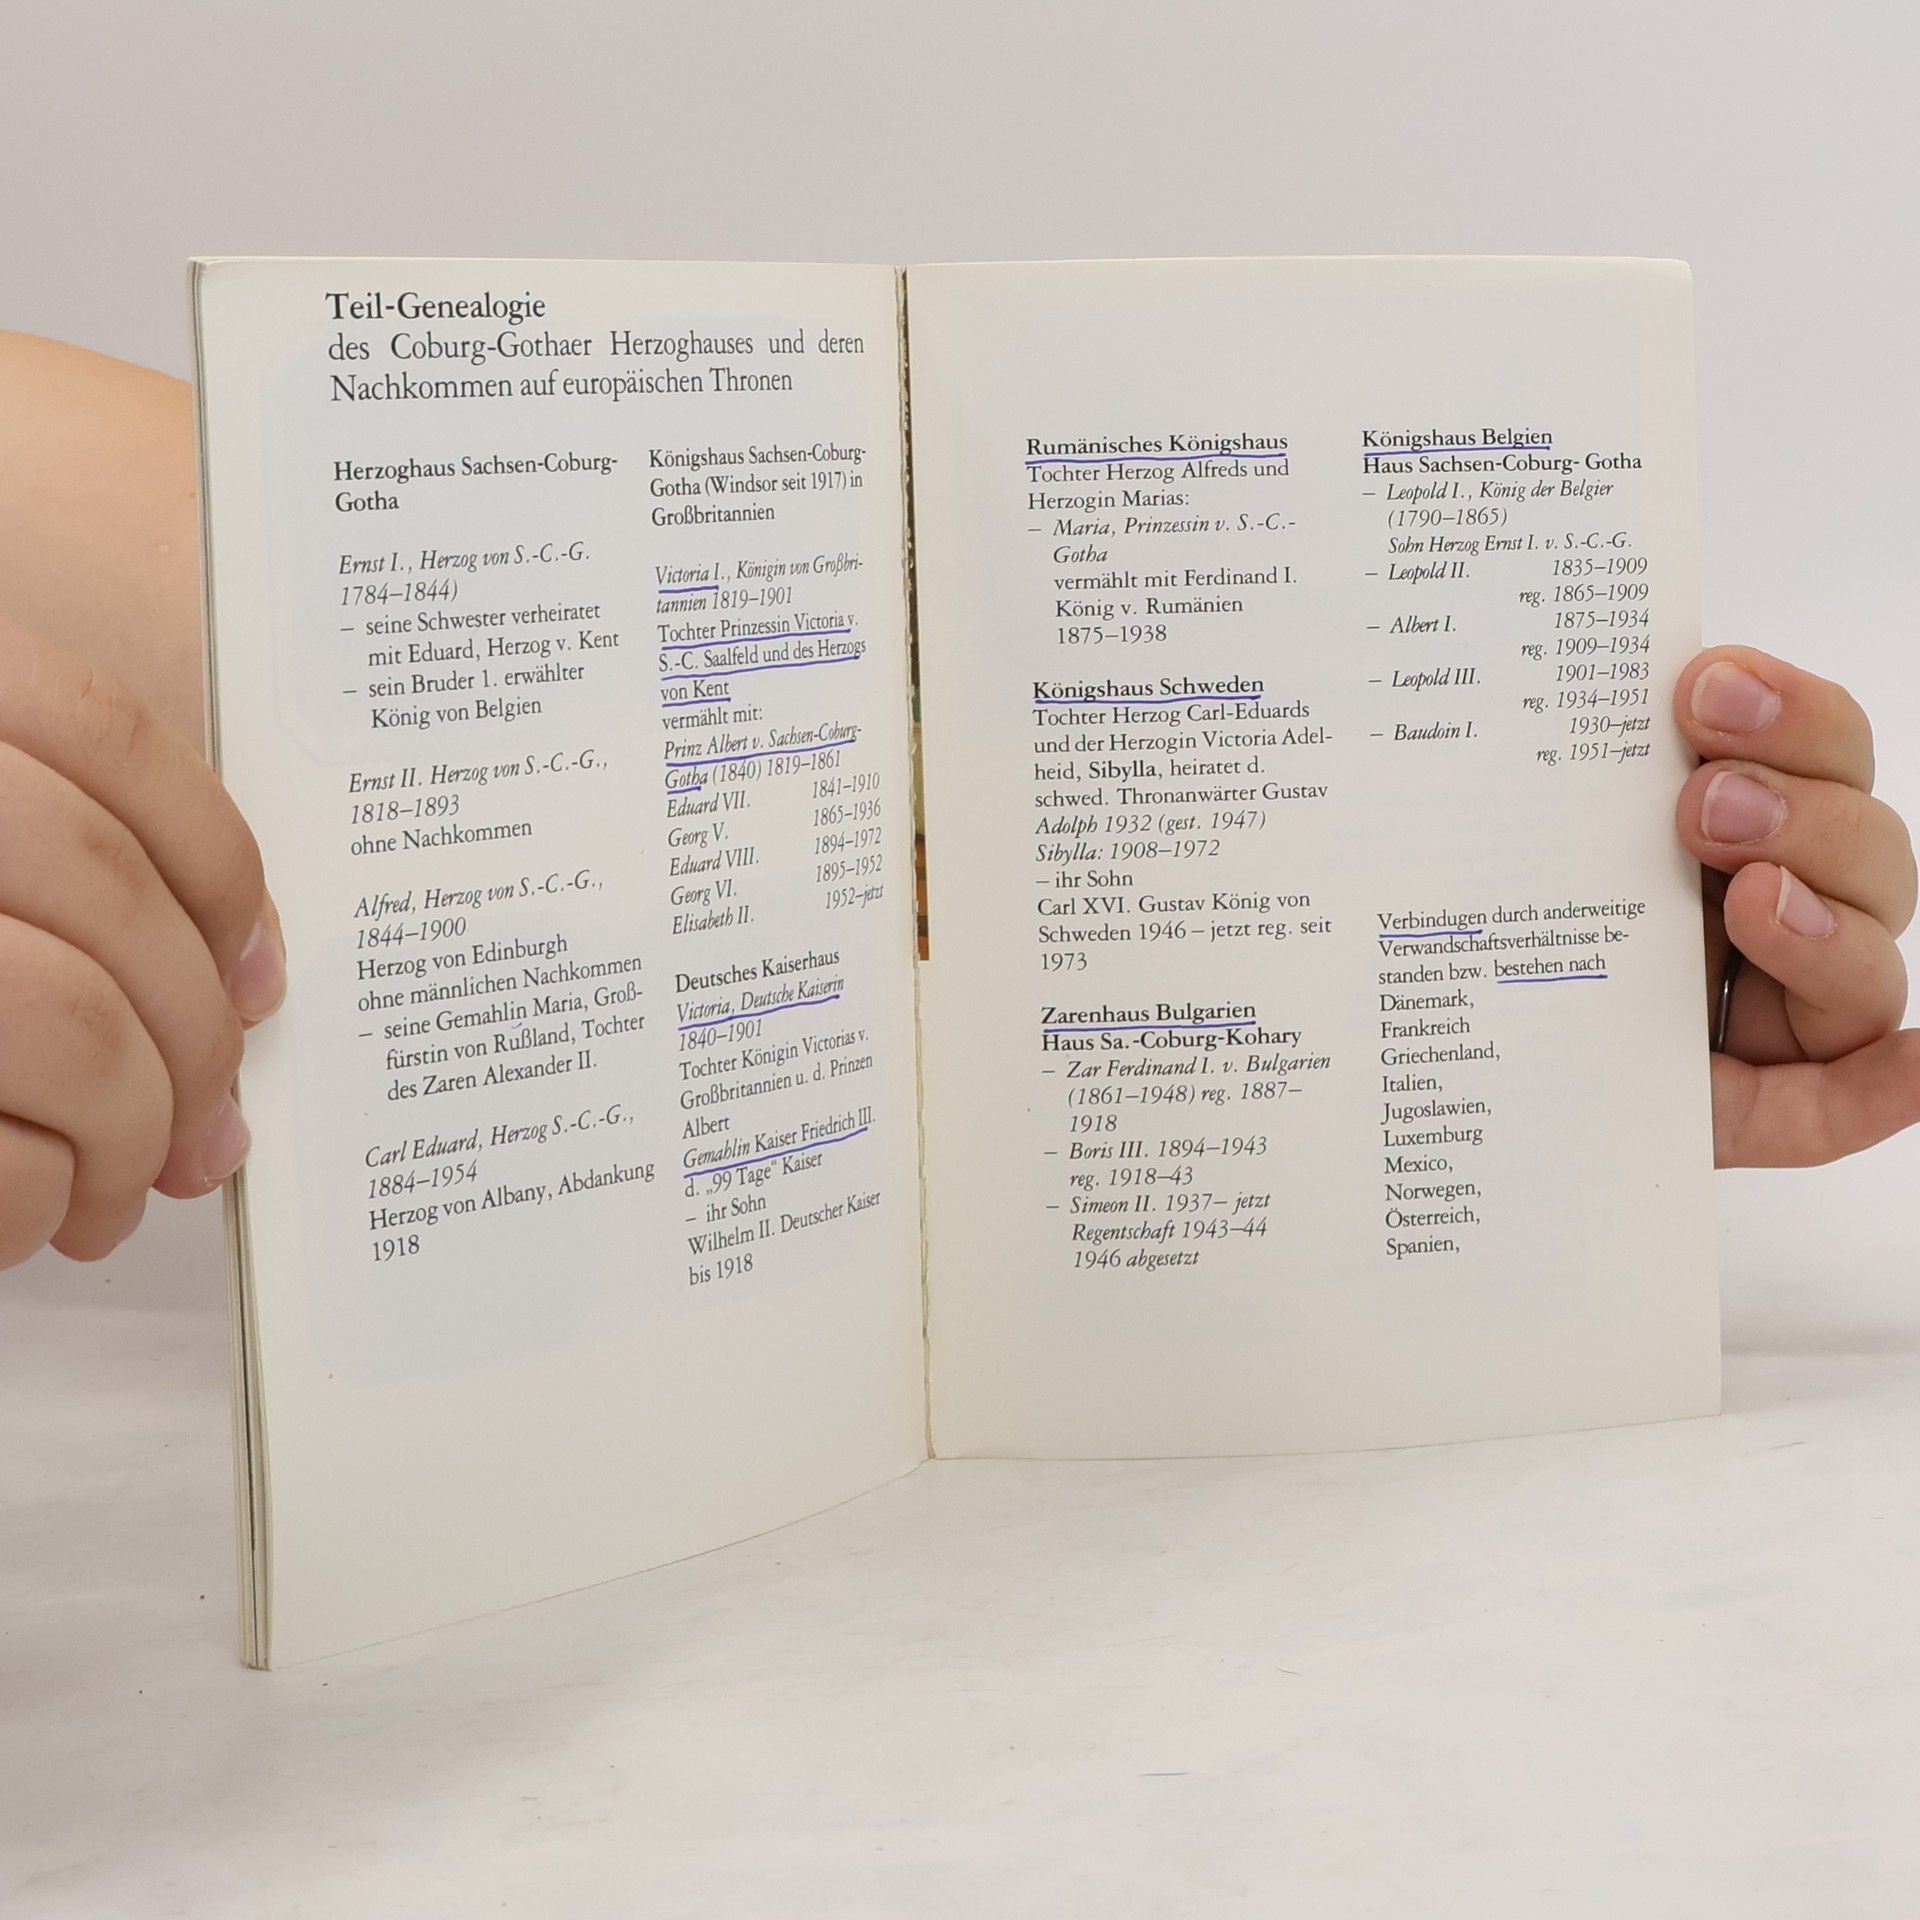 Teil-Genealogie
des Coburg-Gothaer Herzoghauses und deren
Nachkommen auf europäischen Thronen
Herzoghaus Sachsen-Coburg-
Gotha
Ernst I., Herzog von S.-C.-G.
1784–1844)
– seine Schwester verheiratet
mit Eduard, Herzog v. Kent
– sein Bruder 1. erwählter
König von Belgien
Ernst II. Herzog von S.-C.-G.,
1818–1893
ohne Nachkommen
Alfred, Herzog von S.-C.-G.,
1844–1900
Herzog von Edinburgh
ohne männlichen Nachkommen
– seine Gemahlin Maria, Groß-
fürstin von Rußland, Tochter
des Zaren Alexander II.
Carl Eduard, Herzog S.-C.-G.,
1884–1954
Herzog von Albany, Abdankung
1918
Königshaus Sachsen-Coburg-
Gotha (Windsor seit 1917) in
Großbritannien
Victoria I., Königin von Großbri-
tannien 1819–1901
Tochter Prinzessin Victoria v.
S.-C. Saalfeld und des Herzogs
von Kent
vermählt mit:
Prinz Albert v. Sachsen-Coburg-
Gotha (1840) 1819–1861
Eduard VII. 1841–1910
Georg V. 1865–1936
Eduard VIII. 1894–1972
Georg VI. 1895–1952
Elisabeth II. 1952–jetzt
Deutsches Kaiserhaus
Victoria, Deutsche Kaiserin
1840–1901
Tochter Königin Victorias v.
Großbritannien u. d. Prinzen
Albert
Gemahlin Kaiser Friedrich III.
d. „99 Tage“ Kaiser
– ihr Sohn
Wilhelm II. Deutscher Kaiser
bis 1918
Rumänisches Königshaus
Tochter Herzog Alfreds und
Herzogin Marias:
– Maria, Prinzessin v. S.-C.-
Gotha
vermählt mit Ferdinand I.
König v. Rumänien
1875–1938
Königshaus Schweden
Tochter Herzog Carl-Eduards
und der Herzogin Victoria Adel-
heid, Sibylla, heiratet d.
schwed. Thronanwärter Gustav
Adolph 1932 (gest. 1947)
Sibylla: 1908–1972
– ihr Sohn
Carl XVI. Gustav König von
Schweden 1946 – jetzt reg. seit
1973
Zarenhaus Bulgarien
Haus Sa.-Coburg-Kohary
– Zar Ferdinand I. v. Bulgarien
(1861–1948) reg. 1887–
1918
– Boris III. 1894–1943
reg. 1918–43
– Simeon II. 1937– jetzt
Regentschaft 1943–44
1946 abgesetzt
Königshaus Belgien
Haus Sachsen-Coburg- Gotha
– Leopold I., König der Belgier
(1790–1865)
Sohn Herzog Ernst I. v. S.-C.-G.
– Leopold II. 1835–1909
reg. 1865–1909
– Albert I. 1875–1934
reg. 1909–1934
– Leopold III. 1901–1983
reg. 1934–1951
– Baudoin I. 1930–jetzt
reg. 1951–jetzt
Verbindugen durch anderweitige
Verwandschaftsverhältnisse be-
standen bzw. bestehen nach
Dänemark,
Frankreich
Griechenland,
Italien,
Jugoslawien,
Luxemburg
Mexico,
Norwegen,
Österreich,
Spanien,